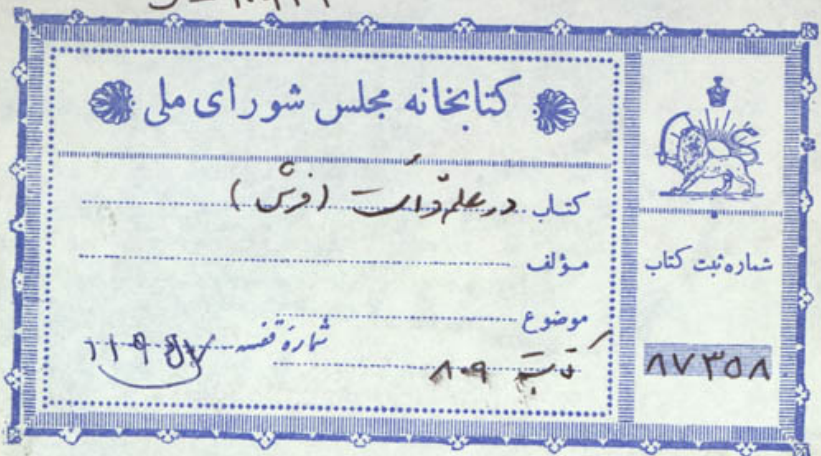 کتابخانه مجلس شورای ملی
کتاب در علم قرائت (فرش)
مؤلف
موضوع
شماره قفسه
کتابت ۸۰۹
شماره ثبت کتاب
۸۷۳۵۸